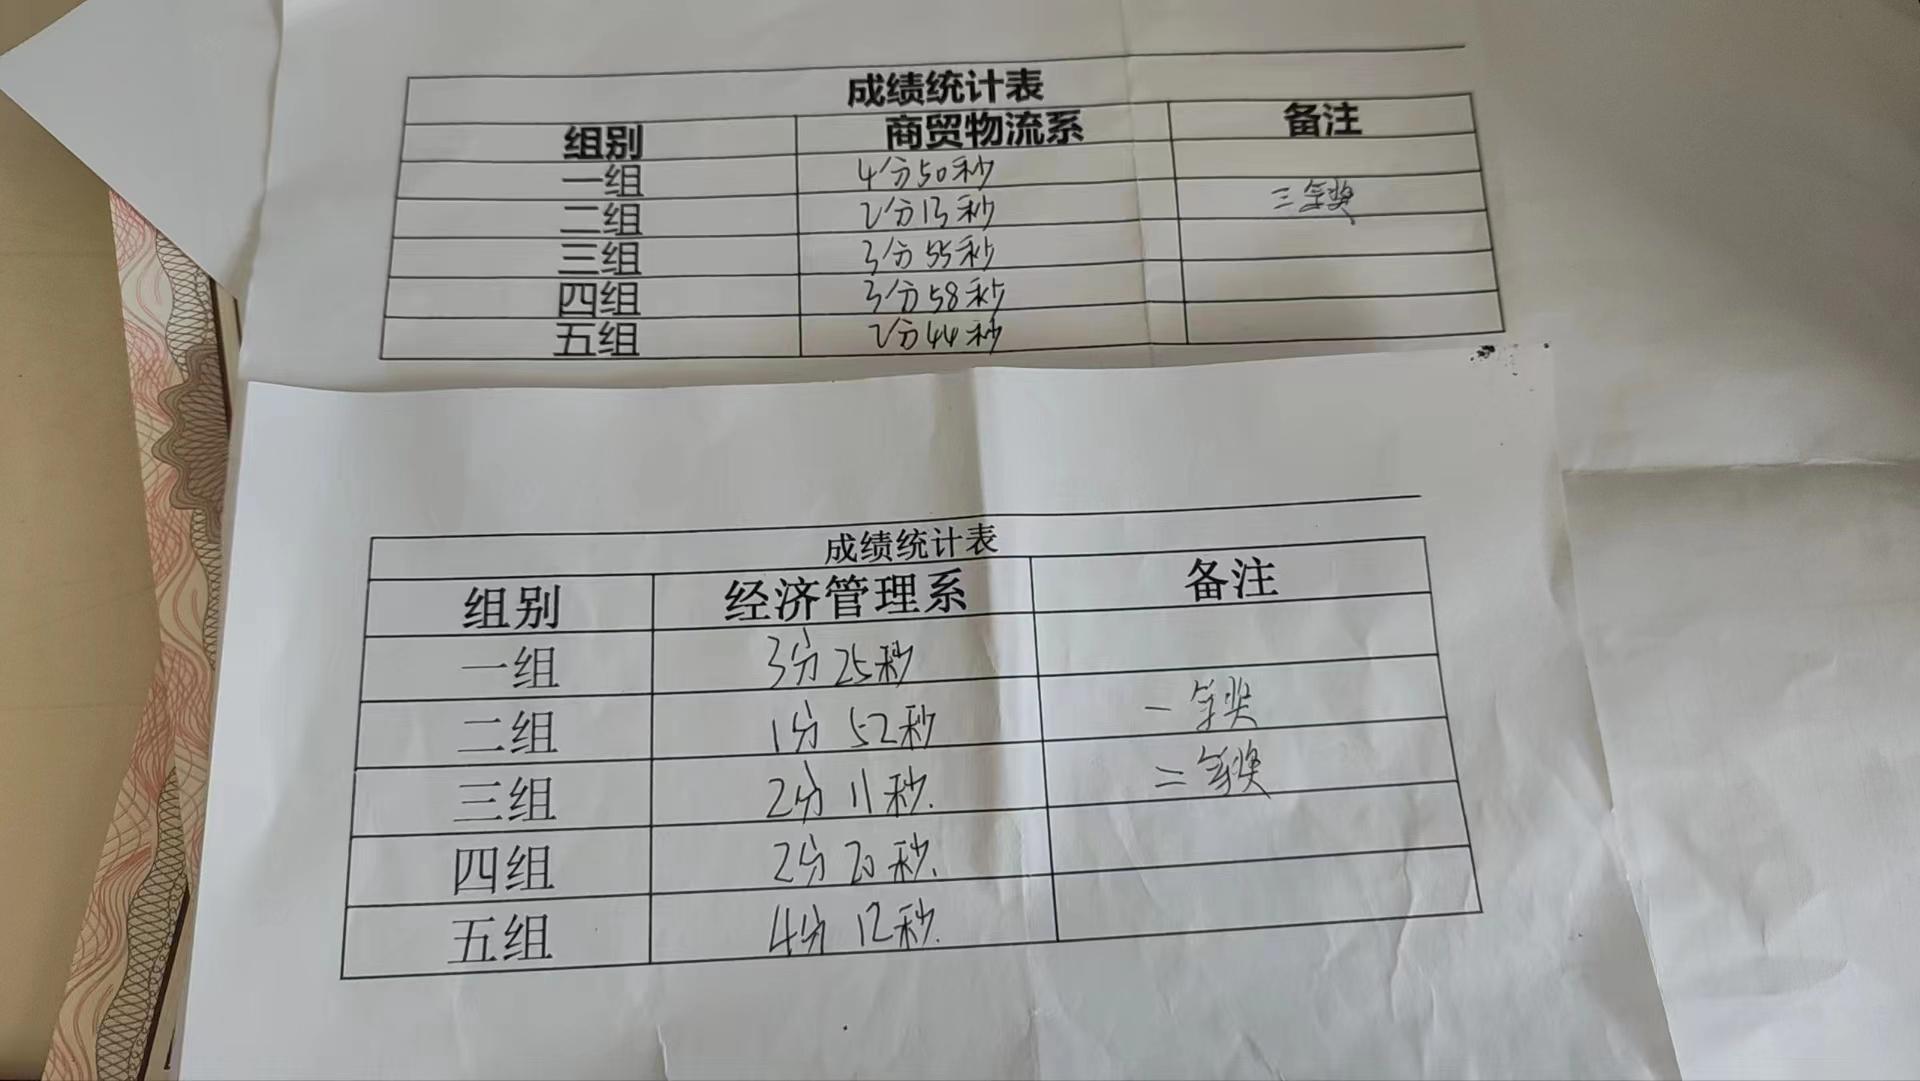 成绩统计表
组别 商贸物流系 备注
一组 4分50秒
二组 2分13秒 三等奖
三组 3分55秒
四组 3分58秒
五组 2分44秒
成绩统计表
组别 经济管理系 备注
一组 3分25秒
二组 1分52秒 一等奖
三组 2分11秒. 二等奖
四组 2分20秒.
五组 4分12秒.